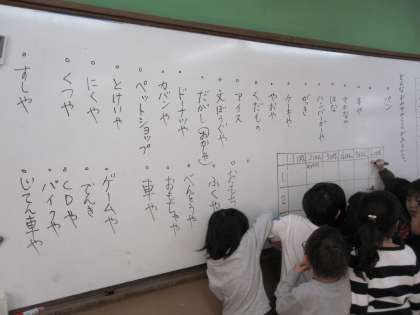 パン
さかなや
はな
ハンバーガーや
がっき
ケーキや
やおや
くだもの
アイス
文ぼうぐや
だがし(おかしや)
ドーナツや
カバンや
ペットショップ
とけいや
にくや
くつや
すしや
ふくや
べんとうや
車や
ゲームや
でんき
CDや
バイクや
じてん車や
1
2